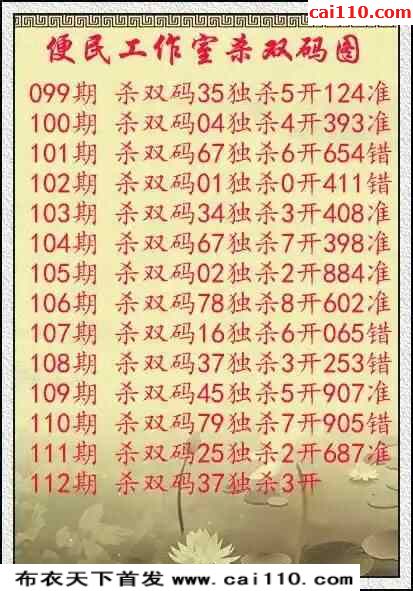 cai110.com
便民工作室杀双码图
099期 杀双码35独杀5开124准
100期 杀双码04独杀4开393准
101期 杀双码67独杀6开654错
102期 杀双码01独杀0开411错
103期 杀双码34独杀3开408准
104期 杀双码67独杀7开398准
105期 杀双码02独杀2开884准
106期 杀双码78独杀8开602准
107期 杀双码16独杀6开065错
108期 杀双码37独杀3开253错
109期 杀双码45独杀5开907准
110期 杀双码79独杀7开905错
111期 杀双码25独杀2开687准
112期 杀双码37独杀3开
布衣天下首发 www.cai110.com